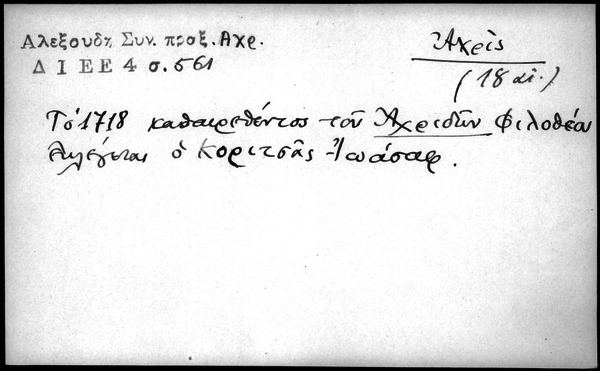 Αλεξουδη Συν. προξ. Αχρ.
Δ Ι Ε Ε 4 σ. 561
Ἀχρὶς
(18 αἰ.)
Τὸ 1718 καθαιρεθέντος τοῦ Ἀχριδῶν Φιλοθέου
ἐκλέγεται ὁ Κοριτσᾶς Ἰωάσαφ.